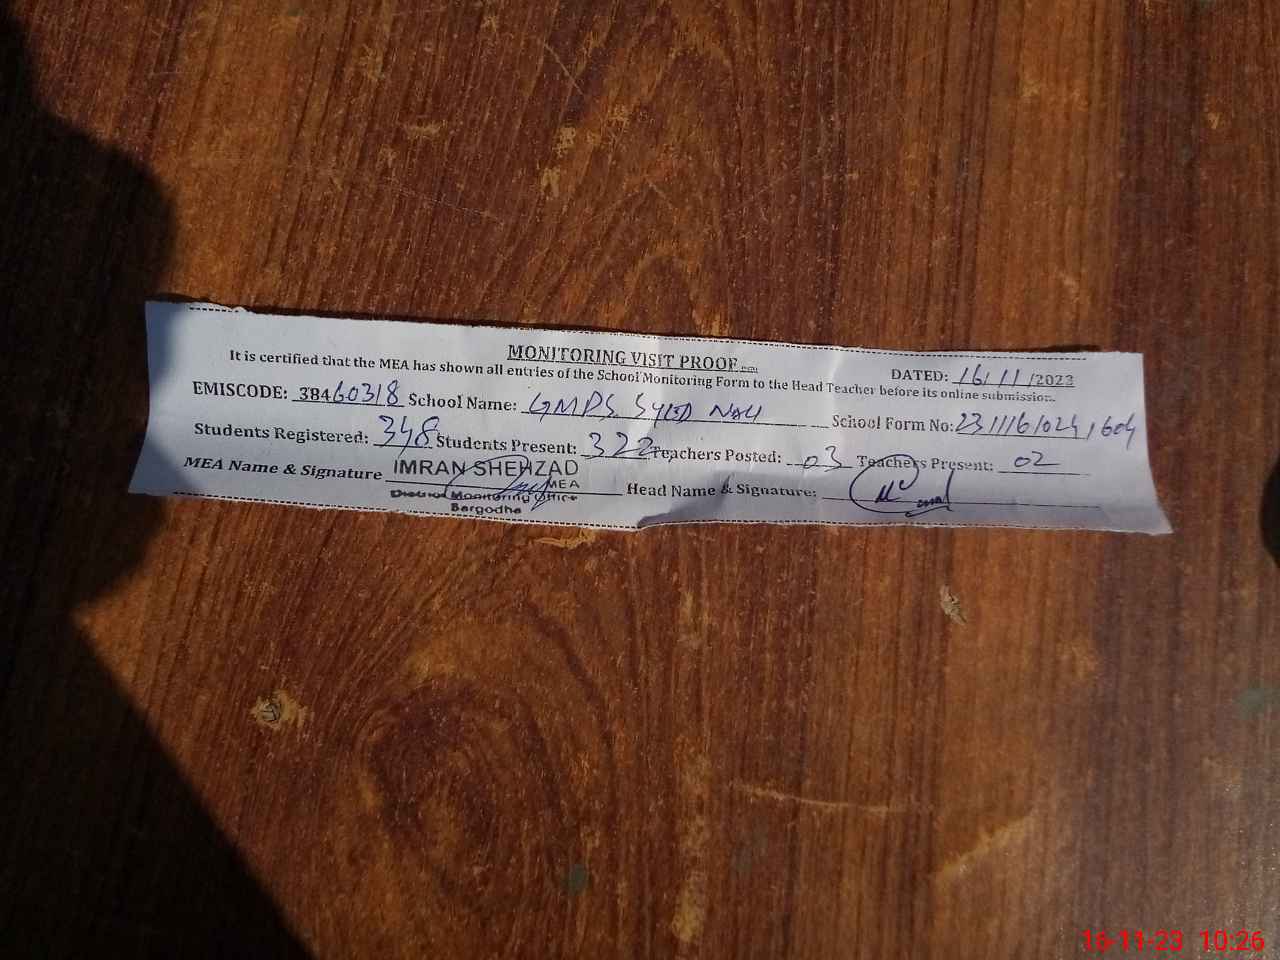 MONITORING VISIT PROOF
DATED: 16/11/2023
It is certified that the MEA has shown all entries of the School Monitoring Form to the Head Teacher before its online submission.
EMISCODE: 38460318 School Name: GMPS SYED NAU School Form No:
Students Registered: 348 Students Present: 322 Teachers Posted: 03 Teachers Present: 02
MEA Name & Signature IMRAN SHEHZAD Head Name & Signature:
MEA
District Monitoring Office
Sargodha
16-11-23 10:26